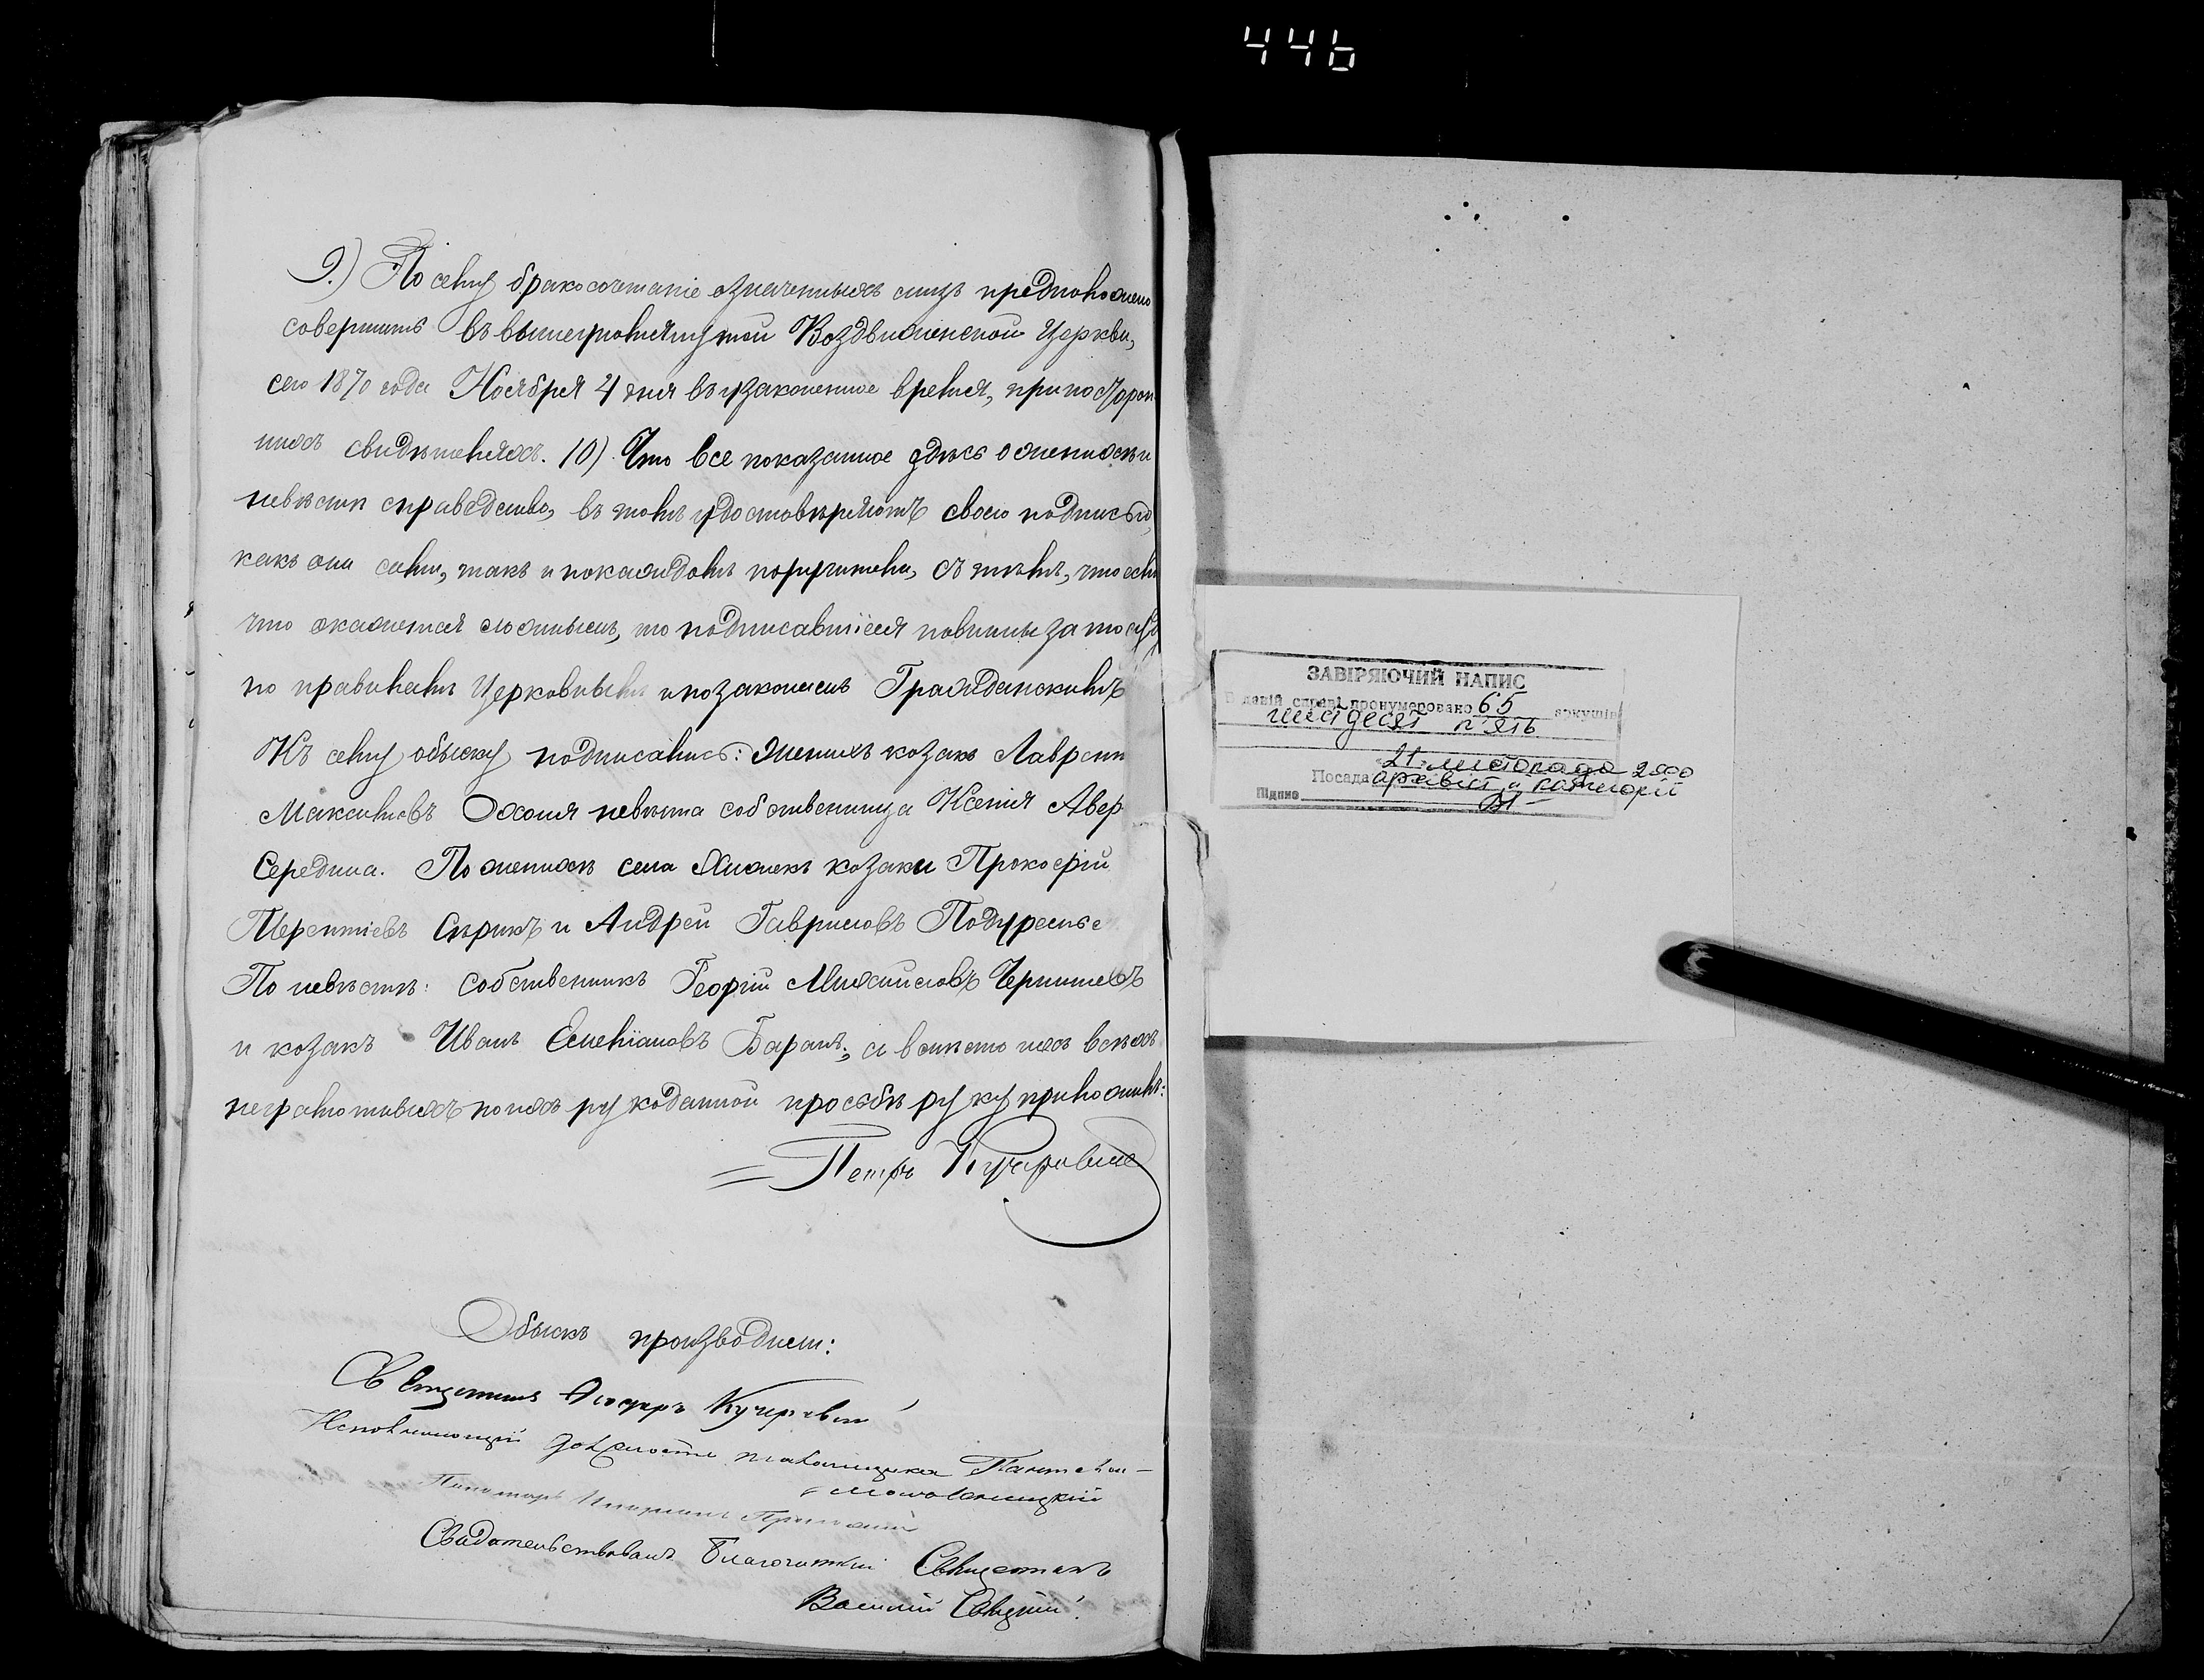 446
9.) По сему бракосочетаніе означенныхъ лицъ предположено
совершить въ вышеупомянутой Воздвиженской Церкви,
сего 1870 года Ноября 4 дня въ узаконенное время, при посторон
нихъ свидѣтеляхъ. 10) Что все показанное здѣсь о женихѣ и
невѣстѣ справедливо, въ томъ удостовѣряютъ своею подписью,
какъ они сами, такъ и по каждомъ поручители, съ тѣмъ, что если
что окажется ложнымъ, то подписавшіеся повинны за то суду
по правиламъ Церковнымъ и по законамъ Гражданскимъ
Къ сему обыску подписались: женихъ козакъ Лаврент
Максимовъ невѣста собственница Ксенія Авер
Середина. По женихѣ села козаки Прокофій
Терентіевъ Сѣрикъ и Андрей Гавриловъ
По невѣстѣ: собственникъ Георгій Михайловъ Чернишевъ
и козакъ Иванъ Емеліановъ Баранъ; а вмѣсто ихъ всѣхъ
неграмотныхъ по ихъ рукоданной просьбѣ руку приложилъ:
Петръ
Обыскъ производили:
Священникъ Кучеровскій
Исполняющій должность
Пономарь
Свидѣтельствовалъ Благочинный Священникъ
Василій
ЗАВІРЯЮЧИЙ НАПИС
В даній справі пронумеровано 65 аркушів
шістдесят п'ять
21 листопада 2000
Посада архівіст II категорії
Підпис